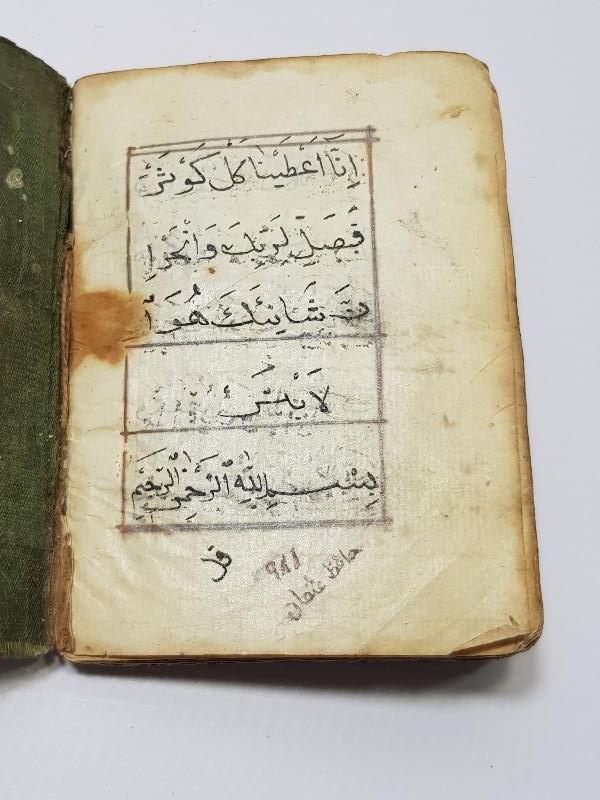 إِنَّا أَعْطَيْنَا كَلْ كَوْثَرْ
فَصَلِّ لِرَبِّكَ وَانْحَرْ اِ
نَّ شَانِئَكَ هُوَ اْ
لَابْتَرُ
بِسْمِ اللَّهِ الرَّحْمَنِ الرَّحِيمِ
قل
٩٨١
حافظ عثمان